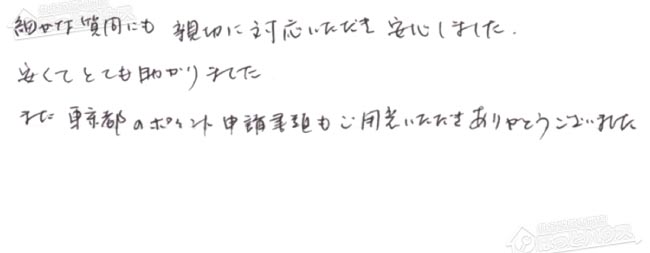 細かな質問にも 親切に対応いただき 安心しました.
安くてとても助かりました
また 東京都のポイント申請書類もご用意いただきありがとうございました